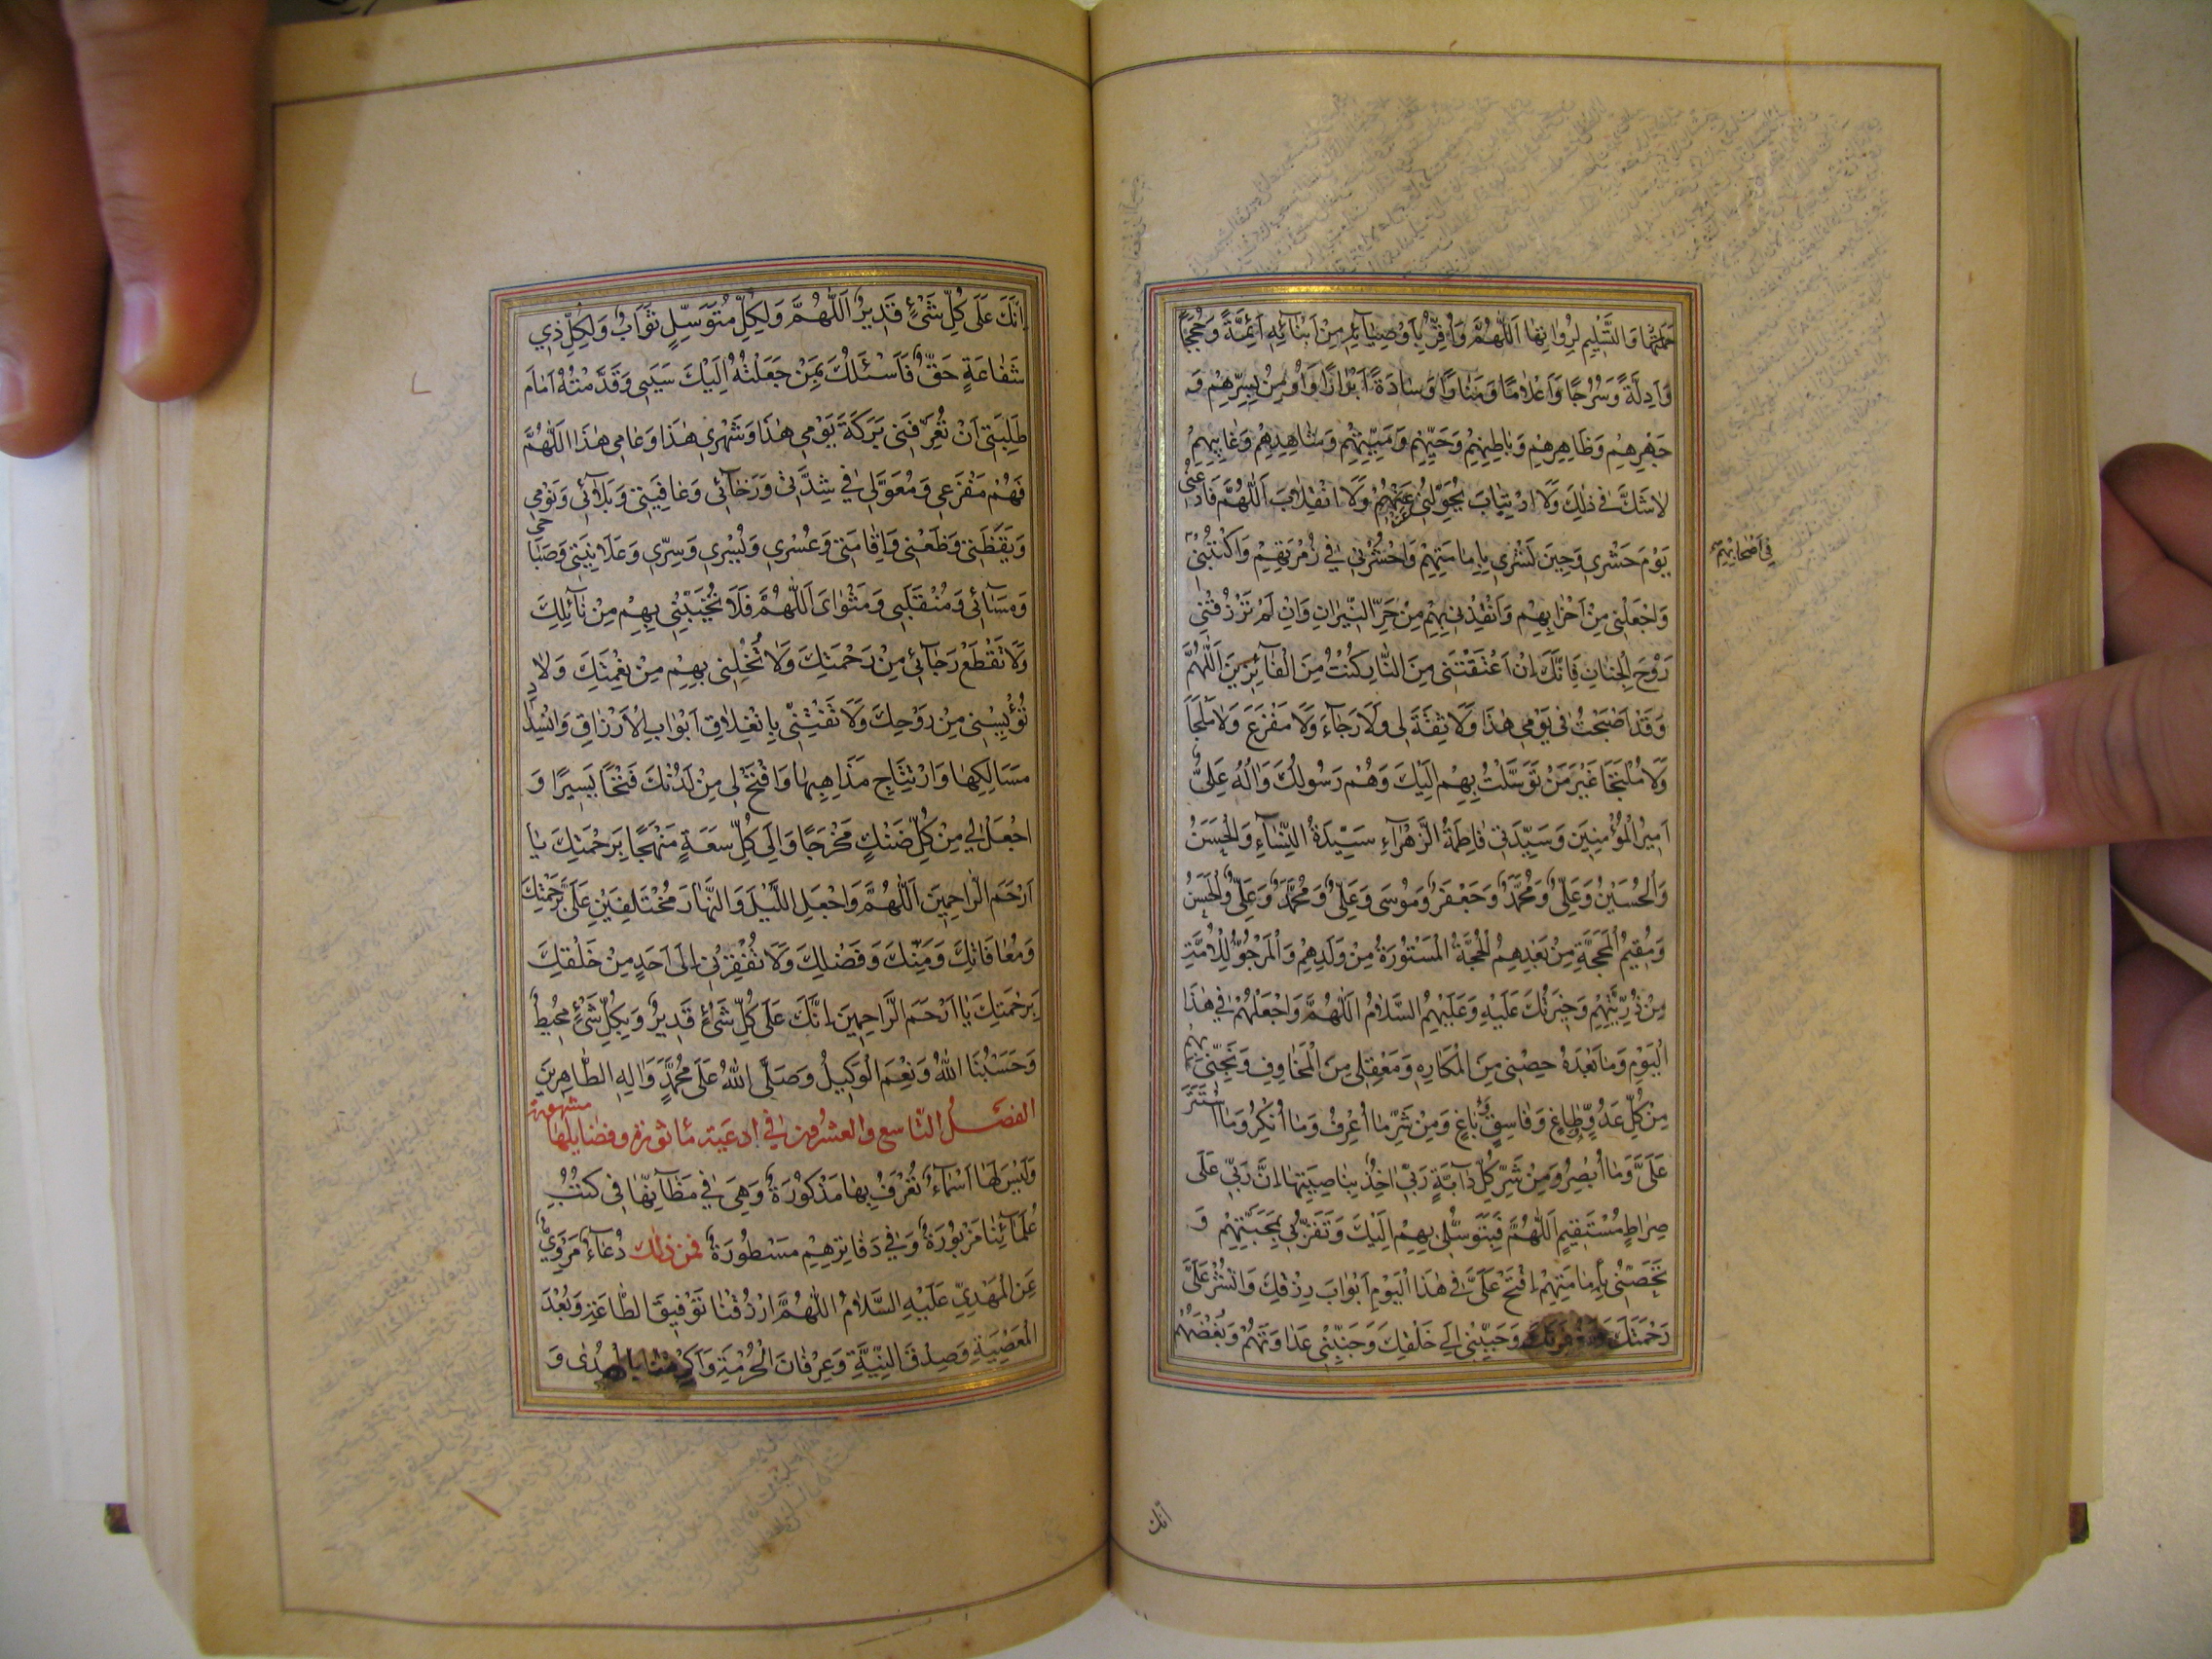 حَمَلَتِهَا وَالتَّسْلِيمِ لِرُوَاتِهَا اَللّٰهُمَّ وَاُقِرُّ بِاَوْصِيَآئِهِ مِنْ اَبْنَآئِهِ اَئِمَّةً وَحُجَجًا
وَاَدِلَّةً وَسُرُجًا وَاَعْلَامًا وَمَنَارًا وَسَادَةً اَبْرَارًا وَاُومِنُ بِسِرِّهِمْ وَ
جَهْرِهِمْ وَظَاهِرِهِمْ وَبَاطِنِهِمْ وَحَيِّهِمْ وَمَيِّتِهِمْ وَشَاهِدِهِمْ وَغَائِبِهِمْ
لَا شَكَّ فِي ذٰلِكَ وَلَا ارْتِيَابَ يُحَوِّلُنِي عَنْهُمْ وَلَا انْقِلَابَ اَللّٰهُمَّ فَادْعُنِي
يَوْمَ حَشْرِي وَحِينَ نَشْرِي بِاِمَامَتِهِمْ وَاحْشُرْنِي فِي زُمْرَتِهِمْ وَاكْتُبْنِي
فِي اَصْحَابِهِمْ
وَاجْعَلْنِي مِنْ اَحْزَابِهِمْ وَاَنْقِذْنِي بِهِمْ مِنْ حَرِّ النِّيرَانِ وَاِنْ لَمْ تَرْزُقْنِي
رَوْحَ الْجِنَانِ فَاِنَّكَ اِنْ اَعْتَقْتَنِي مِنَ النَّارِ كُنْتُ مِنَ الْفَآئِزِينَ اَللّٰهُمَّ
وَقَدْ اَصْبَحْتُ فِي يَوْمِي هٰذَا وَلَا ثِقَةَ لِي وَلَا رَجَآءَ وَلَا مَفْزَعَ وَلَا مَلْجَأَ
وَلَا مُلْتَجَأَ غَيْرَ مَنْ تَوَسَّلْتُ بِهِمْ اِلَيْكَ وَهُمْ رَسُولُكَ وَاٰلُهُ عَلِيٌّ
اَمِيرُ الْمُؤْمِنِينَ وَسَيِّدَتِي فَاطِمَةُ الزَّهْرَآءِ سَيِّدَةُ النِّسَآءِ وَالْحَسَنُ
وَالْحُسَيْنُ وَعَلِيٌّ وَمُحَمَّدٌ وَجَعْفَرٌ وَمُوسَى وَعَلِيٌّ وَمُحَمَّدٌ وَعَلِيٌّ وَالْحَسَنُ
وَمُقِيمُ الْمَحَجَّةِ مِنْ بَعْدِهِمُ الْحُجَّةُ الْمَسْتُورَةُ مِنْ وَلَدِهِمْ وَالْمَرْجُوُّ لِلْاُمَّةِ
مِنْ ذُرِّيَّتِهِمْ وَخِيَرَتُكَ عَلَيْهِ وَعَلَيْهِمُ السَّلَامُ اَللّٰهُمَّ وَاجْعَلْهُمْ فِي هٰذَا
الْيَوْمِ وَمَا بَعْدَهُ حِصْنِي مِنَ الْمَكَارِهِ وَمَعْقِلِي مِنَ الْمَخَاوِفِ وَنَجِّنِي بِهِمْ
مِنْ كُلِّ عَدُوٍّ طَاغٍ وَفَاسِقٍ بَاغٍ وَمِنْ شَرِّ مَا اَعْرِفُ وَمَا اُنْكِرُ وَمَا اسْتَتَرَ
عَلَيَّ وَمَا اُبْصِرُ وَمِنْ شَرِّ كُلِّ دَآبَّةٍ رَبِّي اٰخِذٌ بِنَاصِيَتِهَا اِنَّ رَبِّي عَلَى
صِرَاطٍ مُسْتَقِيمٍ اَللّٰهُمَّ فَبِتَوَسُّلِي بِهِمْ اِلَيْكَ وَتَقَرُّبِي بِمَحَبَّتِهِمْ وَ
تَحَصُّنِي بِاِمَامَتِهِمْ اِفْتَحْ عَلَيَّ فِي هٰذَا الْيَوْمِ اَبْوَابَ رِزْقِكَ وَانْشُرْ عَلَيَّ
رَحْمَتَكَ وَحَبِّبْنِي اِلَى خَلْقِكَ وَجَنِّبْنِي عَدَاوَتَهُمْ وَبُغْضَهُمْ
اِنَّك
اِنَّكَ عَلَى كُلِّ شَيْءٍ قَدِيرٌ اَللّٰهُمَّ وَلِكُلِّ مُتَوَسِّلٍ ثَوَابٌ وَلِكُلِّ ذِي
شَفَاعَةٍ حَقٌّ فَاَسْئَلُكَ بِمَنْ جَعَلْتُهُ اِلَيْكَ سَبَبِي وَقَدَّمْتُهُ اَمَامَ
طَلِبَتِي اَنْ تُعَرِّفَنِي بَرَكَةَ يَوْمِي هٰذَا وَشَهْرِي هٰذَا وَعَامِي هٰذَا اَللّٰهُمَّ
فَهُمْ مَفْزَعِي وَمُعَوَّلِي فِي شِدَّتِي وَرَخَآئِي وَعَافِيَتِي وَبَلَآئِي وَنَوْمِي
وَيَقَظَتِي وَظَعْنِي وَاِقَامَتِي وَعُسْرِي وَيُسْرِي وَسِرِّي وَعَلَانِيَتِي وَصَبَاحِي
وَمَسَآئِي وَمُنْقَلَبِي وَمَثْوَايَ اَللّٰهُمَّ فَلَا تُخَيِّبْنِي بِهِمْ مِنْ نَآئِلِكَ
وَلَا تَقْطَعْ رَجَآئِي مِنْ رَحْمَتِكَ وَلَا تُخْلِنِي بِهِمْ مِنْ نِعْمَتِكَ وَلَا
تُؤْيِسْنِي مِنْ رَوْحِكَ وَلَا تَفْتِنِّي بِانْغِلَاقِ اَبْوَابِ الْاَرْزَاقِ وَانْسِدَادِ
مَسَالِكِهَا وَارْتِتَاجِ مَذَاهِبِهَا وَافْتَحْ لِي مِنْ لَدُنْكَ فَتْحًا يَسِيرًا وَ
اجْعَلْ لِي مِنْ كُلِّ ضَنْكٍ مَخْرَجًا وَاِلَى كُلِّ سَعَةٍ مَنْهَجًا بِرَحْمَتِكَ يَا
اَرْحَمَ الرَّاحِمِينَ اَللّٰهُمَّ وَاجْعَلِ اللَّيْلَ وَالنَّهَارَ مُخْتَلِفَيْنِ عَلَيَّ بِرَحْمَتِكَ
وَمُعَافَاتِكَ وَمَنِّكَ وَفَضْلِكَ وَلَا تُفْقِرْنِي اِلَى اَحَدٍ مِنْ خَلْقِكَ
بِرَحْمَتِكَ يَا اَرْحَمَ الرَّاحِمِينَ اِنَّكَ عَلَى كُلِّ شَيْءٍ قَدِيرٌ وَبِكُلِّ شَيْءٍ مُحِيطٌ
وَحَسْبُنَا اللّٰهُ وَنِعْمَ الْوَكِيلُ وَصَلَّى اللّٰهُ عَلَى مُحَمَّدٍ وَاٰلِهِ الطَّاهِرِينَ
الفصل التاسع والعشرون في ادعية مأثورة وفضايلها مشهورة
وَلَيْسَ لَهَا اَسْمَآءٌ تُعْرَفُ بِهَا مَذْكُورَةٌ وَهِيَ فِي مَظَآنِّهَا فِي كُتُبِ
عُلَمَآئِنَا مَزْبُورَةٌ وَفِي دَفَاتِرِهِمْ مَسْطُورَةٌ فمن ذلك دُعَآءٌ مَرْوِيٌّ
عَنِ الْمَهْدِيِّ عَلَيْهِ السَّلَامُ اَللّٰهُمَّ ارْزُقْنَا تَوْفِيقَ الطَّاعَةِ وَبُعْدَ
الْمَعْصِيَةِ وَصِدْقَ النِّيَّةِ وَعِرْفَانَ الْحُرْمَةِ وَاَكْرِمْنَا بِالْهُدَى وَ